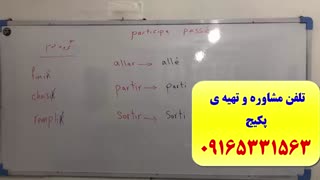 participe passé
گروه دوم
aller → allé
finir
partir → parti
choisir
sortir → sorti
remplir
تلفن مشاوره و تهیه ی
پکیج
۰۹۱۶۵۳۳۱۵۶۳